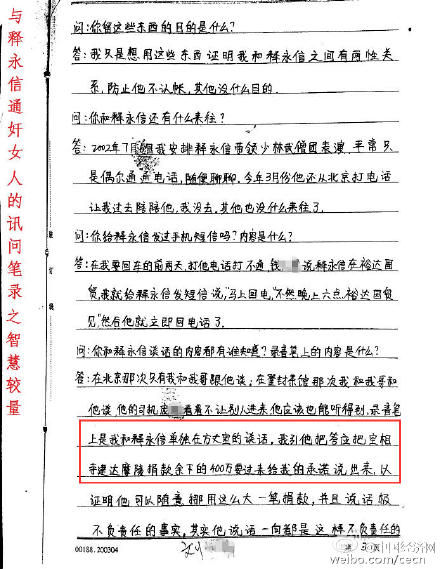 与释永信通奸女人的讯问笔录之智慧较量
问:你留这些东西的目的是什么?
答:我只是想用这些东西证明我和释永信之间有两性关
系,防止他不认帐,其他没什么目的.
问:你和释永信还有什么来往?
答:2002年7月 我安排释永信带领少林武僧团表演,平常只
是偶尔通通电话,随便聊聊.今年3月份他还从北京打电话
让我过去陪陪他,我没去,其他也没什么来往了.
问:你给释永信发过手机短信吗?内容是什么?
答:在我要回车的前两天,打他电话打不通,钱 说,释永信在裕达国
贸,我就给释永信发短信说,"马上回电,不然晚上六点裕达国贸
见"然后他就立即回电话了.
问:你和释永信谈话的内容都有谁知道?录音笔上的内容是什么?
答:在北京那次只有我和我哥跟他谈,在 那次我和我哥和
他谈,他的司机 看着不让别人进来他应该也能听得到,录音笔
上是我和释永信单独在方丈室的谈话,我引他把答应把空相
寺建达摩殿捐款余下的400万要过来给我的承诺说出来,以
证明他可以随意挪用这么大一笔捐款,并且说话极
不负责任的事实,其实他说话一向都是这样不负责任的
00188.200304
第 页
@中国经济网
weibo.com/cecn